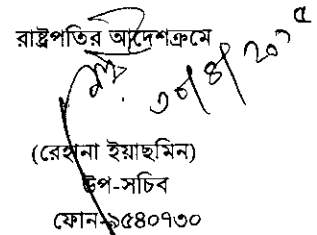 রাষ্ট্রপতির আদেশক্রমে
৩০/৪/২০১৫
(রেহানা ইয়াছমিন)
উপ-সচিব
ফোন-৯৫৪০৭৩০